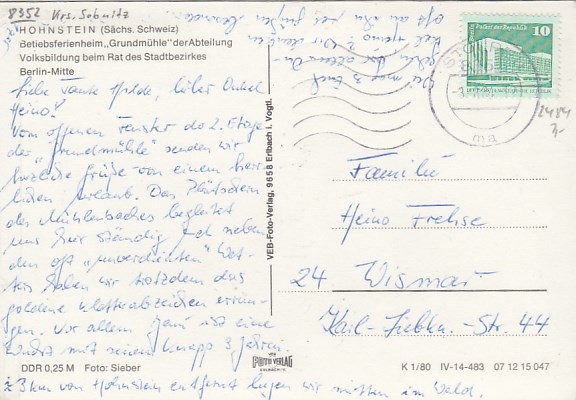 8352 Krs. Sebnitz
HOHNSTEIN (Sächs. Schweiz)
Betiebsferienheim „Grundmühle" der Abteilung
Volksbildung beim Rat des Stadtbezirkes
Berlin-Mitte
Liebe Tante Hilde, lieber Onkel
Heino!
Vom offenen Fenster der 2. Etage
der „Grundmühle" senden wir
herzliche Grüße von einem herr-
lichen Urlaub. Das Plätschern
des Mühlenbaches begleitet
uns hier ständig. Und neben
den oft
haben wir trotzdem das
goldene Kletterabzeichen errun-
gen. Vor allem Jani ist eine
Wucht mit seinen knapp 3 Jahren.
≈ 3 km von Hohnstein entfernt liegen wir mitten im Wald.
DDR 0,25 M Foto: Sieber
VEB-Foto-Verlag, 9658 Erlbach i. Vogtl.
VEB
FOTO VERLAG
ERLBACH/V.
Palast der Republik
10
2484
3,-
Familie
Heino Frehse
24 Wismar
Karl-Liebkn.-Str. 44
K 1/80 IV-14-483 07 12 15 047